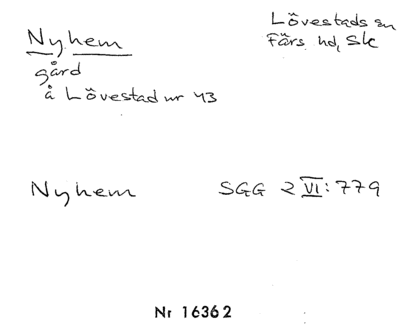 Nyhem
Lövestads sn
Färs hd, Sk
gård
å Lövestad nr 43
Nyhem SGG 2 VI: 779
Nr 16362